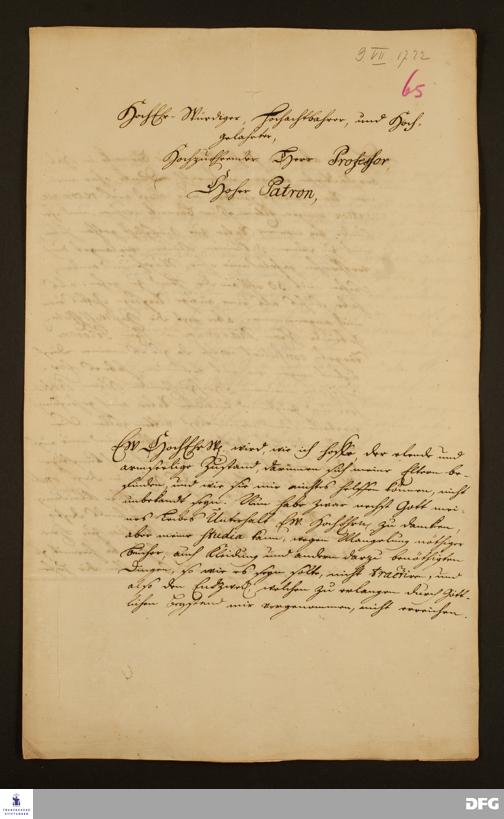 9. VII. 1722
65
HochEhr-Würdiger, Hochachtbahrer, und Hoch-
gelahrter,
Hochzuehrender Herr Professor,
Hoher Patron,
Ew. HochEhrW. wird, wie ich hoffe, der elende und
armseelige Zustand darinnen sich meine Eltern be-
finden, und wie sie mir nichts helffen können, nicht
unbekandt seyn. Nun habe zwar nechst Gott mei-
nes Leibes Unterhalt Ew. zu dancken,
aber meine Studia kan, wegen Mangelung nöthiger
Bücher, auch Kleidung und andern darzu benöthigten
Dingen, so wie es seyn solte, nicht tractiren, und
also den Endzweck, welchen zu erlangen durch Gött-
lichen Beystand mir vorgenommen, nicht erreichen.
FRANCKESCHE
STIFTUNGEN
DFG